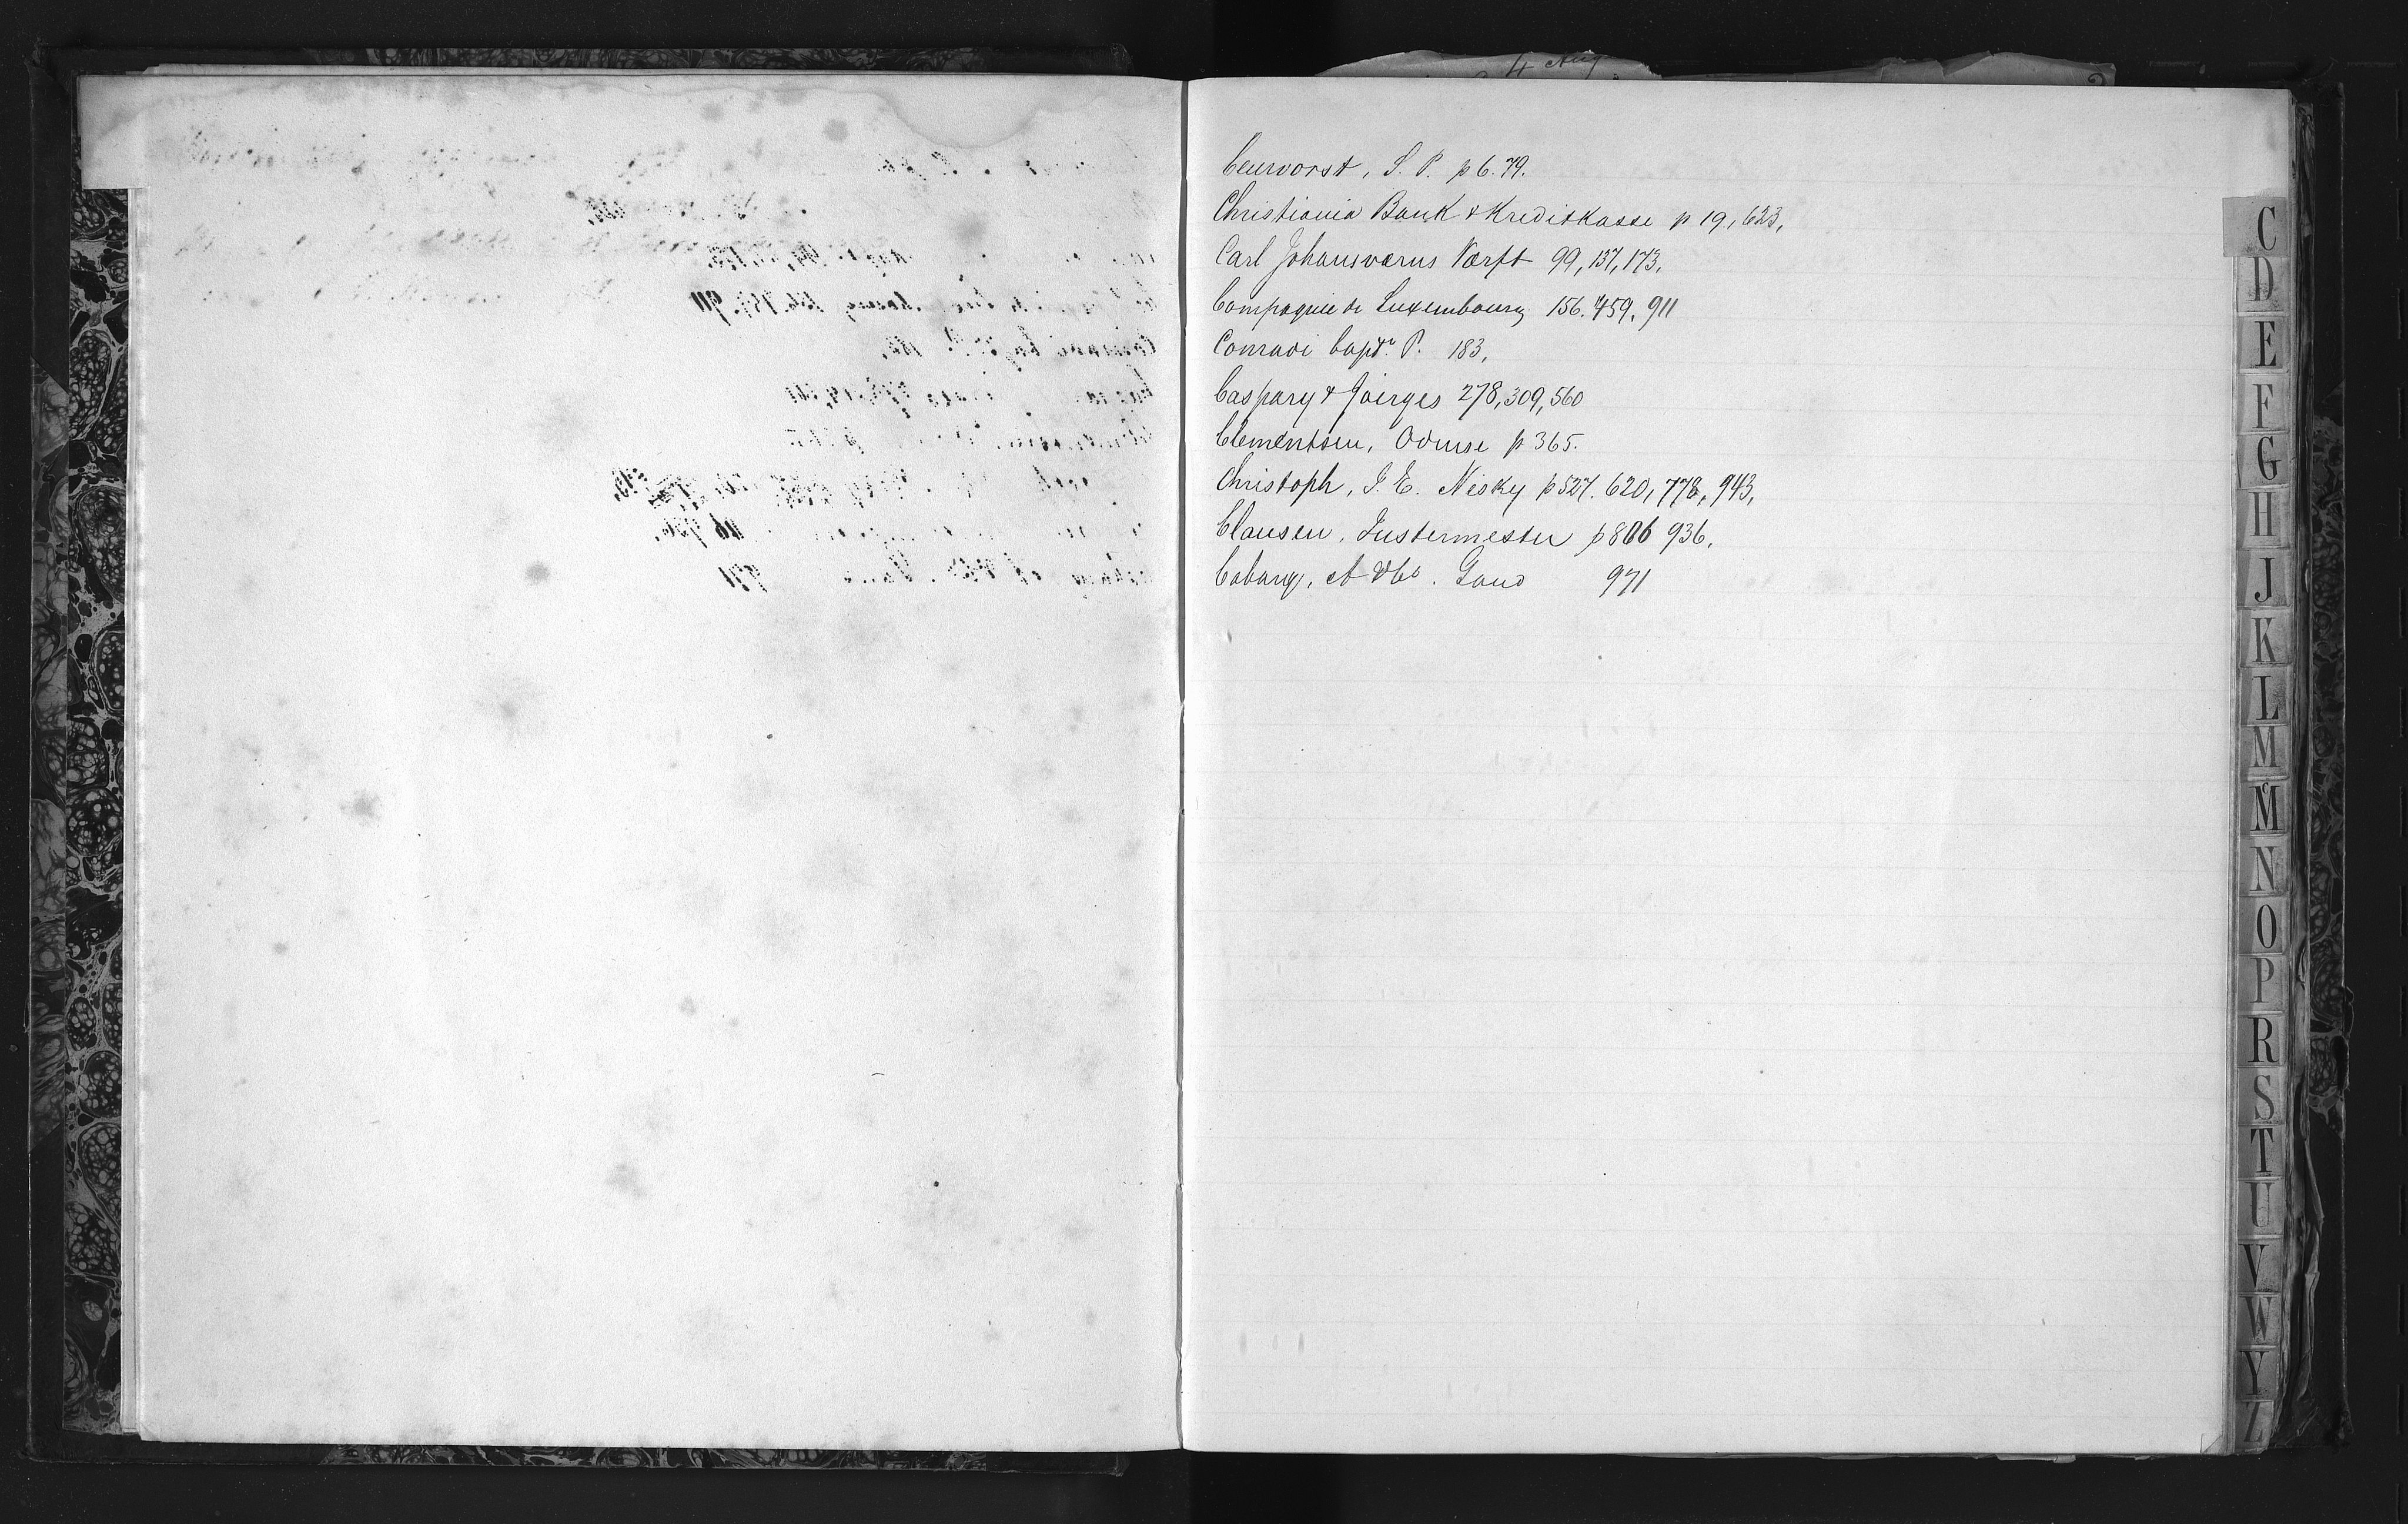 4 Aug
Ceurvorst, S. P. p 6. 79.
Christiania Bank & Kreditkasse p 19, 623,
Carl Johansværns Værft 99, 137, 173.
Compagnie de Luxembourg 156. 459, 911
Conradi Capt. P. 183,
Caspary & Joerges 278, 309, 560
Clementsen, p 365.
Christoph, J. E. Nisky p 527. 620, 778, 943,
Clausen, Justermester p 806 936.
Coburg, A & Co. Gand 971
C
D
E
F
G
H
J
K
L
M
Mc
N
O
P
R
S
T
U
V
W
Y
Z